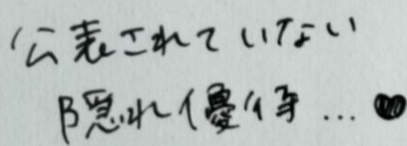 公表されていない
隠れ優待…♥